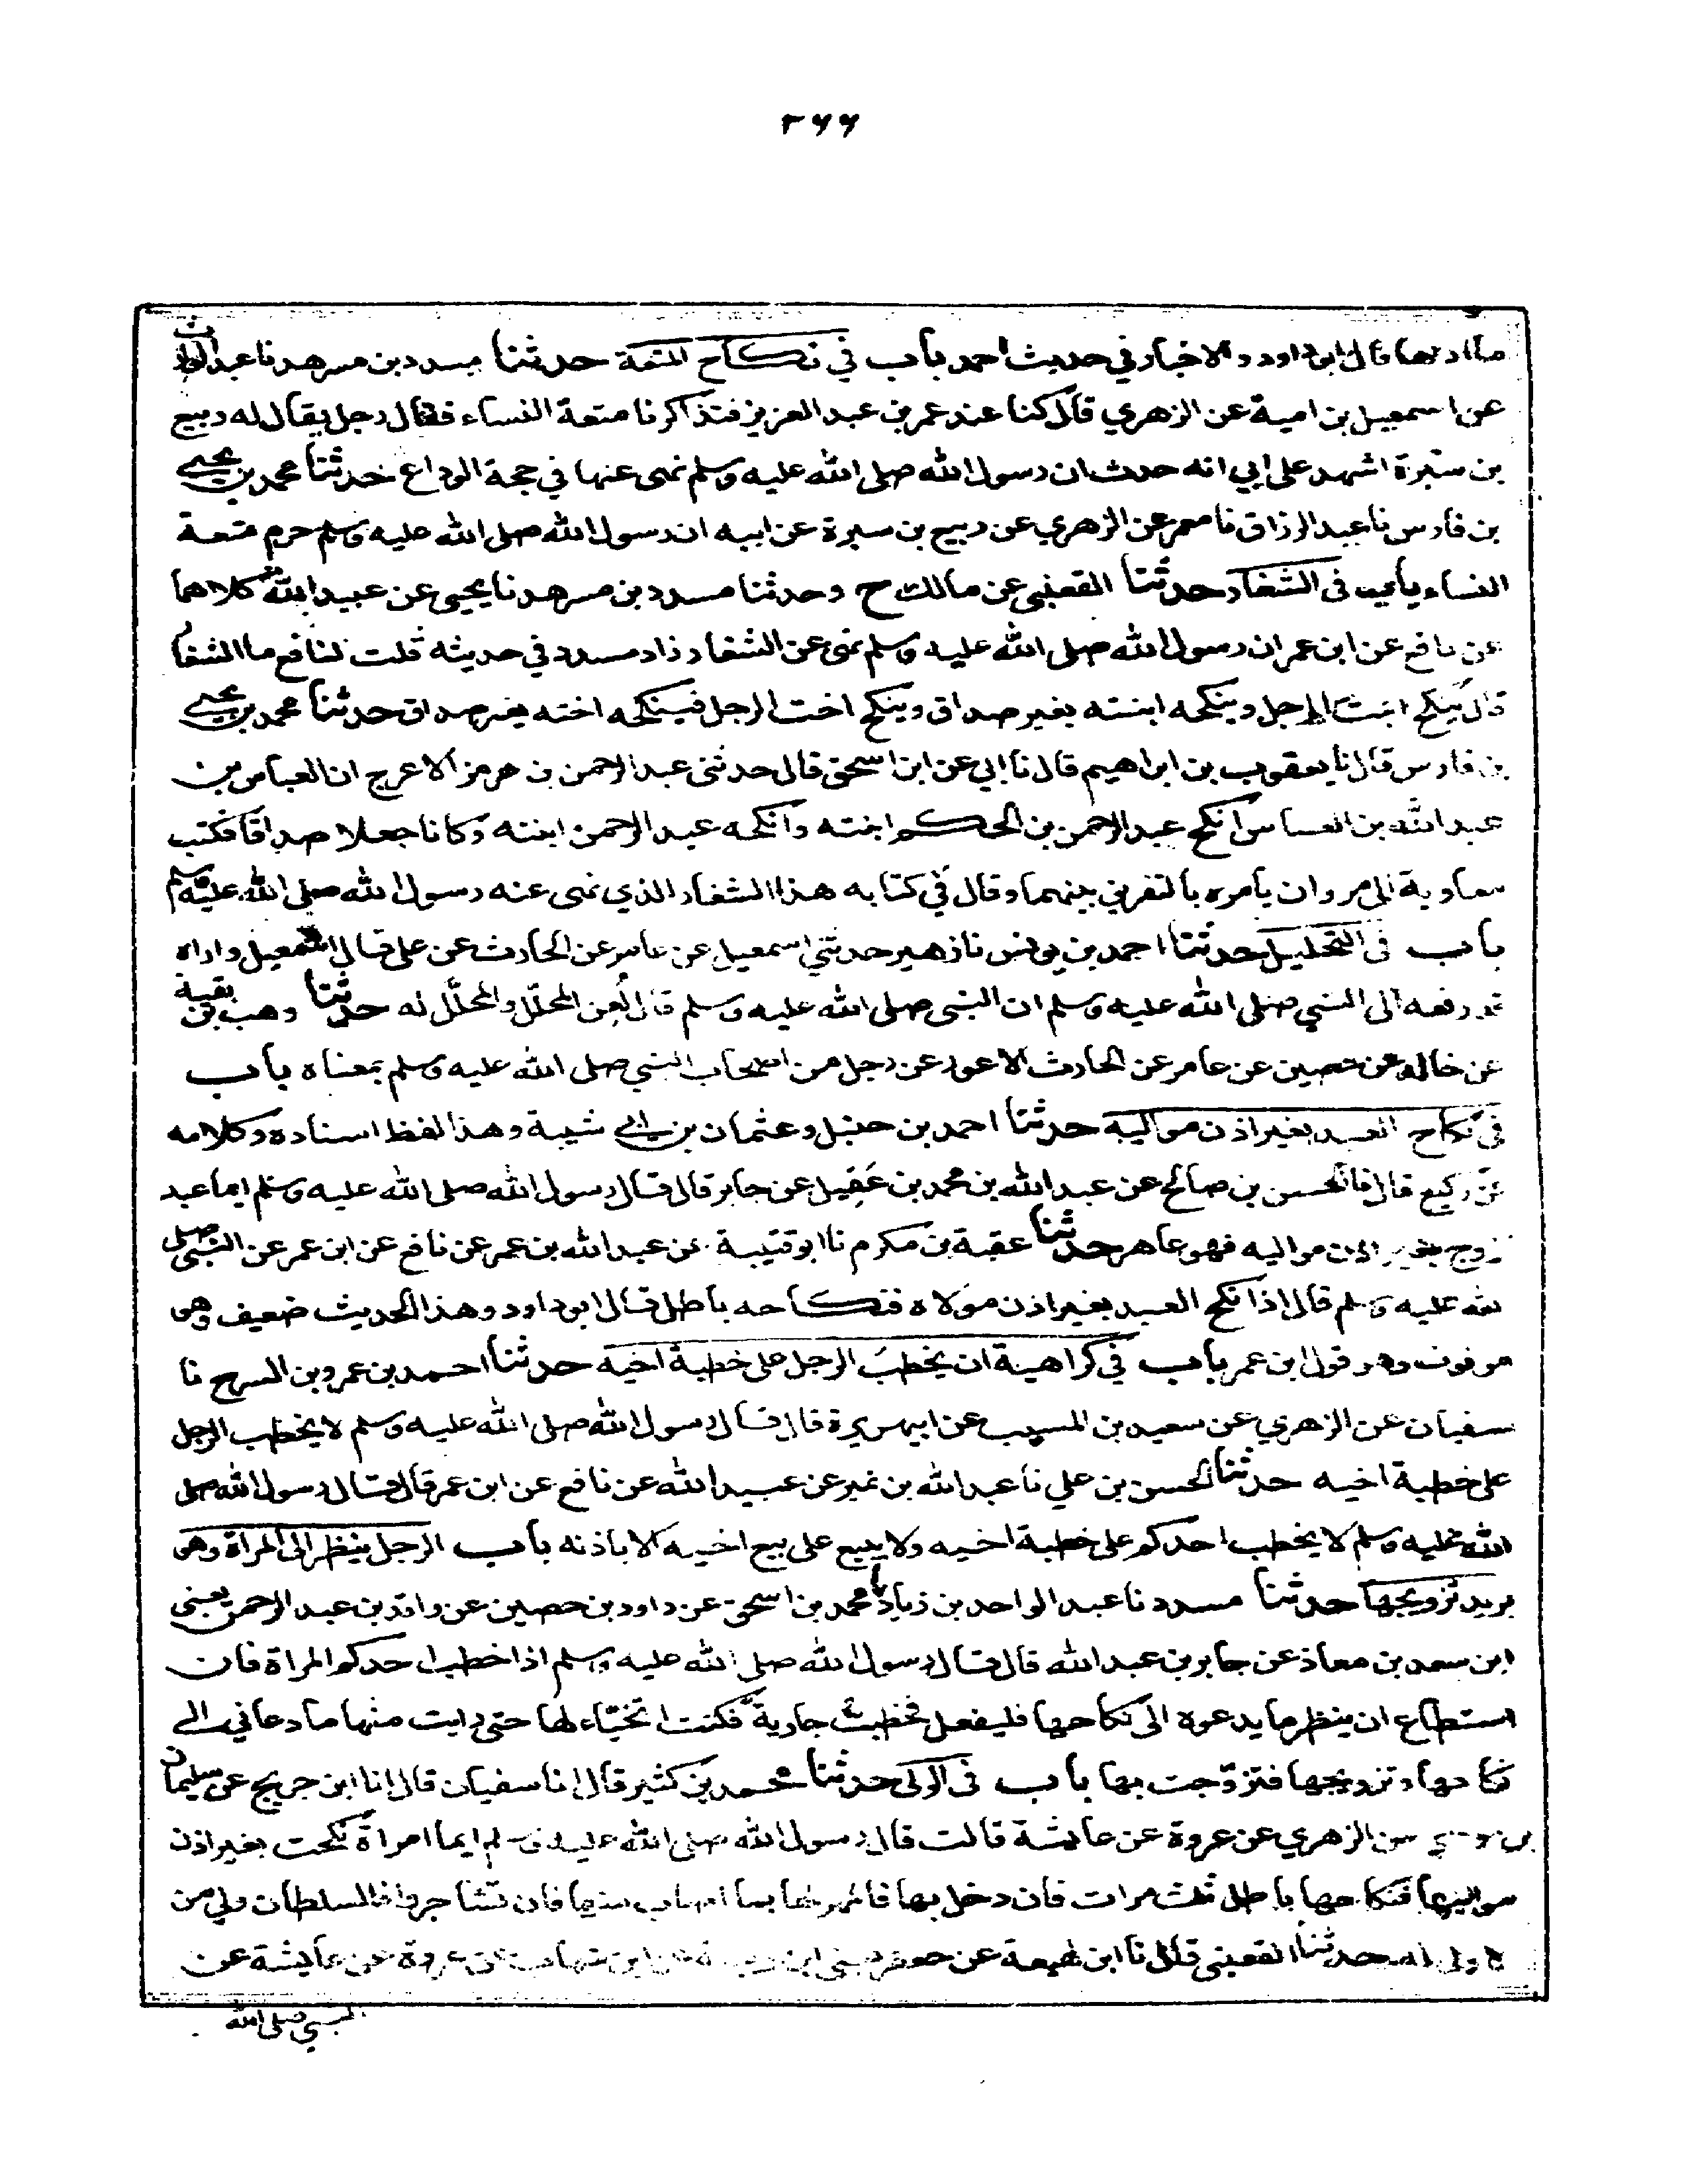 ٣٦٦
ما ادرها قال ابو داود والاخبار في حديث احمد باب في نكاح المتعة حدثنا مسدد بن مسرهد نا عبد الوارث
عن اسمعيل بن امية عن الزهري قال كنا عند عمر بن عبد العزيز فتذاكرنا متعة النساء فقال رجل يقال له ربيع
بن سبرة اشهد على ابي انه حدث ان رسول الله صلى الله عليه وسلم نهى عنها في حجة الوداع حدثنا محمد بن يحيى
بن فارس نا عبد الرزاق نا معمر عن الزهري عن ربيع بن سبرة عن ابيه ان رسول الله صلى الله عليه وسلم حرم متعة
النساء باب في الشغار حدثنا القعنبي عن مالك ح وحدثنا مسدد بن مسرهد نا يحيى عن عبيد الله كلاهما
عن نافع عن ابن عمر ان رسول الله صلى الله عليه وسلم نهى عن الشغار زاد مسدد في حديثه قلت لنافع ما الشغار
قال ينكح ابنة الرجل وينكحه ابنته بغير صداق وينكح اخت الرجل فينكحه اخته بغير صداق حدثنا محمد بن يحيى
بن فارس قال نا يعقوب بن ابراهيم قال نا ابي عن ابن اسحق قال حدثني عبد الرحمن بن هرمز الاعرج ان العباس بن
عبد الله بن العباس انكح عبد الرحمن بن الحكم ابنته وانكحه عبد الرحمن ابنته وكانا جعلا صداقا فكتب
معاوية الى مروان يامره بالتفريق بينهما وقال في كتابه هذا الشغار الذي نهى عنه رسول الله صلى الله عليه وسلم
باب في التحليل حدثنا احمد بن يونس نا زهير حدثني اسمعيل عن عامر عن الحارث عن علي قال اسمعيل واراه
قد رفعه الى النبي صلى الله عليه وسلم ان النبي صلى الله عليه وسلم قال لُعِن المحلّل والمحلَّل له حدثنا وهب بن بقية
عن خالد عن حصين عن عامر عن الحارث الاعور عن رجل من اصحاب النبي صلى الله عليه وسلم بمعناه باب
في نكاح العبد بغير اذن مواليه حدثنا احمد بن حنبل وعثمان بن ابي شيبة وهذا لفظ اسناده وكلامه
عن وكيع قال نا الحسن بن صالح عن عبد الله بن محمد بن عَقِيل عن جابر قال قال رسول الله صلى الله عليه وسلم ايما عبد
تزوج بغير اذن مواليه فهو عاهر حدثنا عقبة بن مكرم نا ابو قتيبة عن عبد الله بن عمر عن نافع عن ابن عمر عن النبي صلى
الله عليه وسلم قال اذا نكح العبد بغير اذن مولاه فنكاحه باطل قال ابو داود وهذا الحديث ضعيف وهو
موقوف وهو قول ابن عمر باب في كراهية ان يخطبَ الرجل على خطبة اخيه حدثنا احمد بن عمرو بن السرح نا
سفيان عن الزهري عن سعيد بن المسيب عن ابي هريرة قال قال رسول الله صلى الله عليه وسلم لا يخطب الرجل
على خطبة اخيه حدثنا الحسن بن علي نا عبد الله بن نمير عن عبيد الله عن نافع عن ابن عمر قال قال رسول الله صلى
الله عليه وسلم لا يخطب احدكم على خطبة اخيه ولا يبيع على بيع اخيه الا باذنه باب الرجل ينظر الى المراة وهو
يريد تزويجها حدثنا مسدد نا عبد الواحد بن زياد نا محمد بن اسحق عن داود بن حصين عن واقد بن عبد الرحمن يعني
ابن سعد بن معاذ عن جابر بن عبد الله قال قال رسول الله صلى الله عليه وسلم اذا خطب احدكم المراة فان
استطاع ان ينظر ما يدعوه الى نكاحها فليفعل فخطبت جارية فكنت اتخبّاء لها حتى رايت منها ما دعاني الى
نكاحها وتزويجها فتزوّجت بها باب في الولي حدثنا محمد بن كثير قال انا سفيان قال انا ابن جريج عن سليمان
بن موسى عن الزهري عن عروة عن عايشة قالت قال رسول الله صلى الله عليه وسلم ايما امراة نكحت بغير اذن
مواليها فنكاحها باطل ثلث مرات فان دخل بها فالمهر لها بما اصاب منها فان تشاجروا فالسلطان ولي من
لا ولي له حدثنا القعنبي قال نا ابن لهيعة عن جعفر يعني ابن ربيعة عن ابن شهاب عن عروة عن عايشة عن
النبي صلى الله